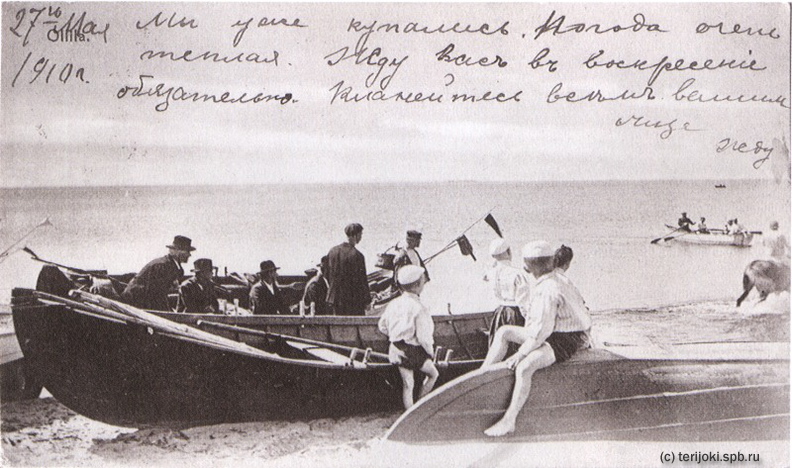 27го Мая
1910г.
Ollila.
Мы уже купались. Погода очень
теплая. Жду васъ въ воскресеніе
обязательно. Кланейтесь всемъ вашимъ
еще
жду
(c) terijoki.spb.ru